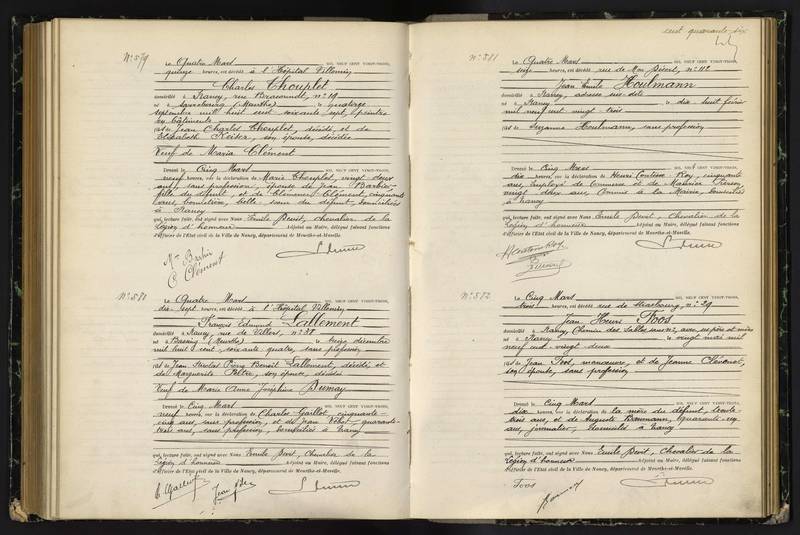 cent quarante-six
N° 579
Le Quatre Mars mil neuf cent vingt-trois,
quinze heures, est décédé à l'Hôpital Villemin
Charles Chouplet
domicilié à Nancy, rue Braconnot, n° 19
né à Sarrebourg (Meurthe) le quatorze
septembre mil huit cent soixante sept, peintre
en bâtiments
fils de Jean Charles Chouplet, décédé, et de
Elisabeth Reiter, son épouse, décédée
Veuf de Maria Clément
Dressé le Cinq Mars mil neuf cent vingt-trois,
neuf heures, sur la déclaration de Marie Chouplet, vingt deux
ans, sans profession, épouse de Jean Barbier,
fille du défunt, et de Clémence Clément, cinquante
ans, belle sœur du défunt, domiciliées
à Nancy
qui, lecture faite, ont signé avec Nous Emile Devit, chevalier de la
Légion d'honneur Adjoint au Maire, délégué faisant fonctions
d'Officier de l'Etat civil de la Ville de Nancy, département de Meurthe-et-Moselle.
Mme Barbier
C Clément
N° 580
Le Quatre Mars mil neuf cent vingt-trois,
dix sept heures, est décédé à l'Hôpital Villemin
François Edmond Lallement
domicilié à Nancy, rue de Villers, n° 38
né à (Meurthe) le treize décembre
mil huit cent soixante quatre, sans profession
fils de Jean Nicolas Pierre Benoit Lallement, décédé, et
de Marguerite Peltre, son épouse, décédée
Veuf de Marie Anne Joséphine Dumay
Dressé le Cinq Mars mil neuf cent vingt-trois,
neuf heures, sur la déclaration de Charles Gaillot, cinquante
cinq ans, sans profession, et de Jean quarante-
trois ans, sans profession, domiciliés à Nancy
qui, lecture faite, ont signé avec Nous Emile Devit, Chevalier de la
Légion d'honneur Adjoint au Maire, délégué faisant fonctions
d'Officier de l'Etat civil de la Ville de Nancy, département de Meurthe-et-Moselle.
N° 581
Le Quatre Mars mil neuf cent vingt-trois,
seize heures, est décédé rue de Mon Désert, n° 112
Jean Emile Houlmann
domicilié à Nancy, adresse sus-dite
né à Nancy le dix huit février
mil neuf cent vingt trois
fils de Suzanne Houlmann, sans profession
Dressé le Cinq Mars mil neuf cent vingt-trois,
dix heures, sur la déclaration de Henri Roy, cinquante
ans, employé de Commerce et de Maurice
vingt deux ans Commis à la Mairie, domiciliés
à Nancy
qui, lecture faite, ont signé avec Nous Emile Devit, Chevalier de la
Légion d'honneur Adjoint au Maire, délégué faisant fonctions
d'Officier de l'Etat civil de la Ville de Nancy, département de Meurthe-et-Moselle.
N° 582
Le Cinq Mars mil neuf cent vingt-trois,
trois heures, est décédé rue de Strasbourg, n° 29
Jean Henri Toos
domicilié à Nancy, Chemin des Sables sans n°, avec ses père et mère
né à Nancy le vingt mai mil
neuf cent vingt deux
fils de Jean Toos, manœuvre, et de Jeanne
son épouse, sans profession
Dressé le Cinq Mars mil neuf cent vingt-trois,
dix heures, sur la déclaration de la mère du défunt, trente-
trois ans, et de Auguste Baumann, quarante-six
ans, journalier, domiciliés à Nancy
qui, lecture faite, ont signé avec Nous Emile Devit, Chevalier de la
Légion d'honneur Adjoint au Maire, délégué faisant fonctions
d'Officier de l'Etat civil de la Ville de Nancy, département de Meurthe-et-Moselle.
Toos